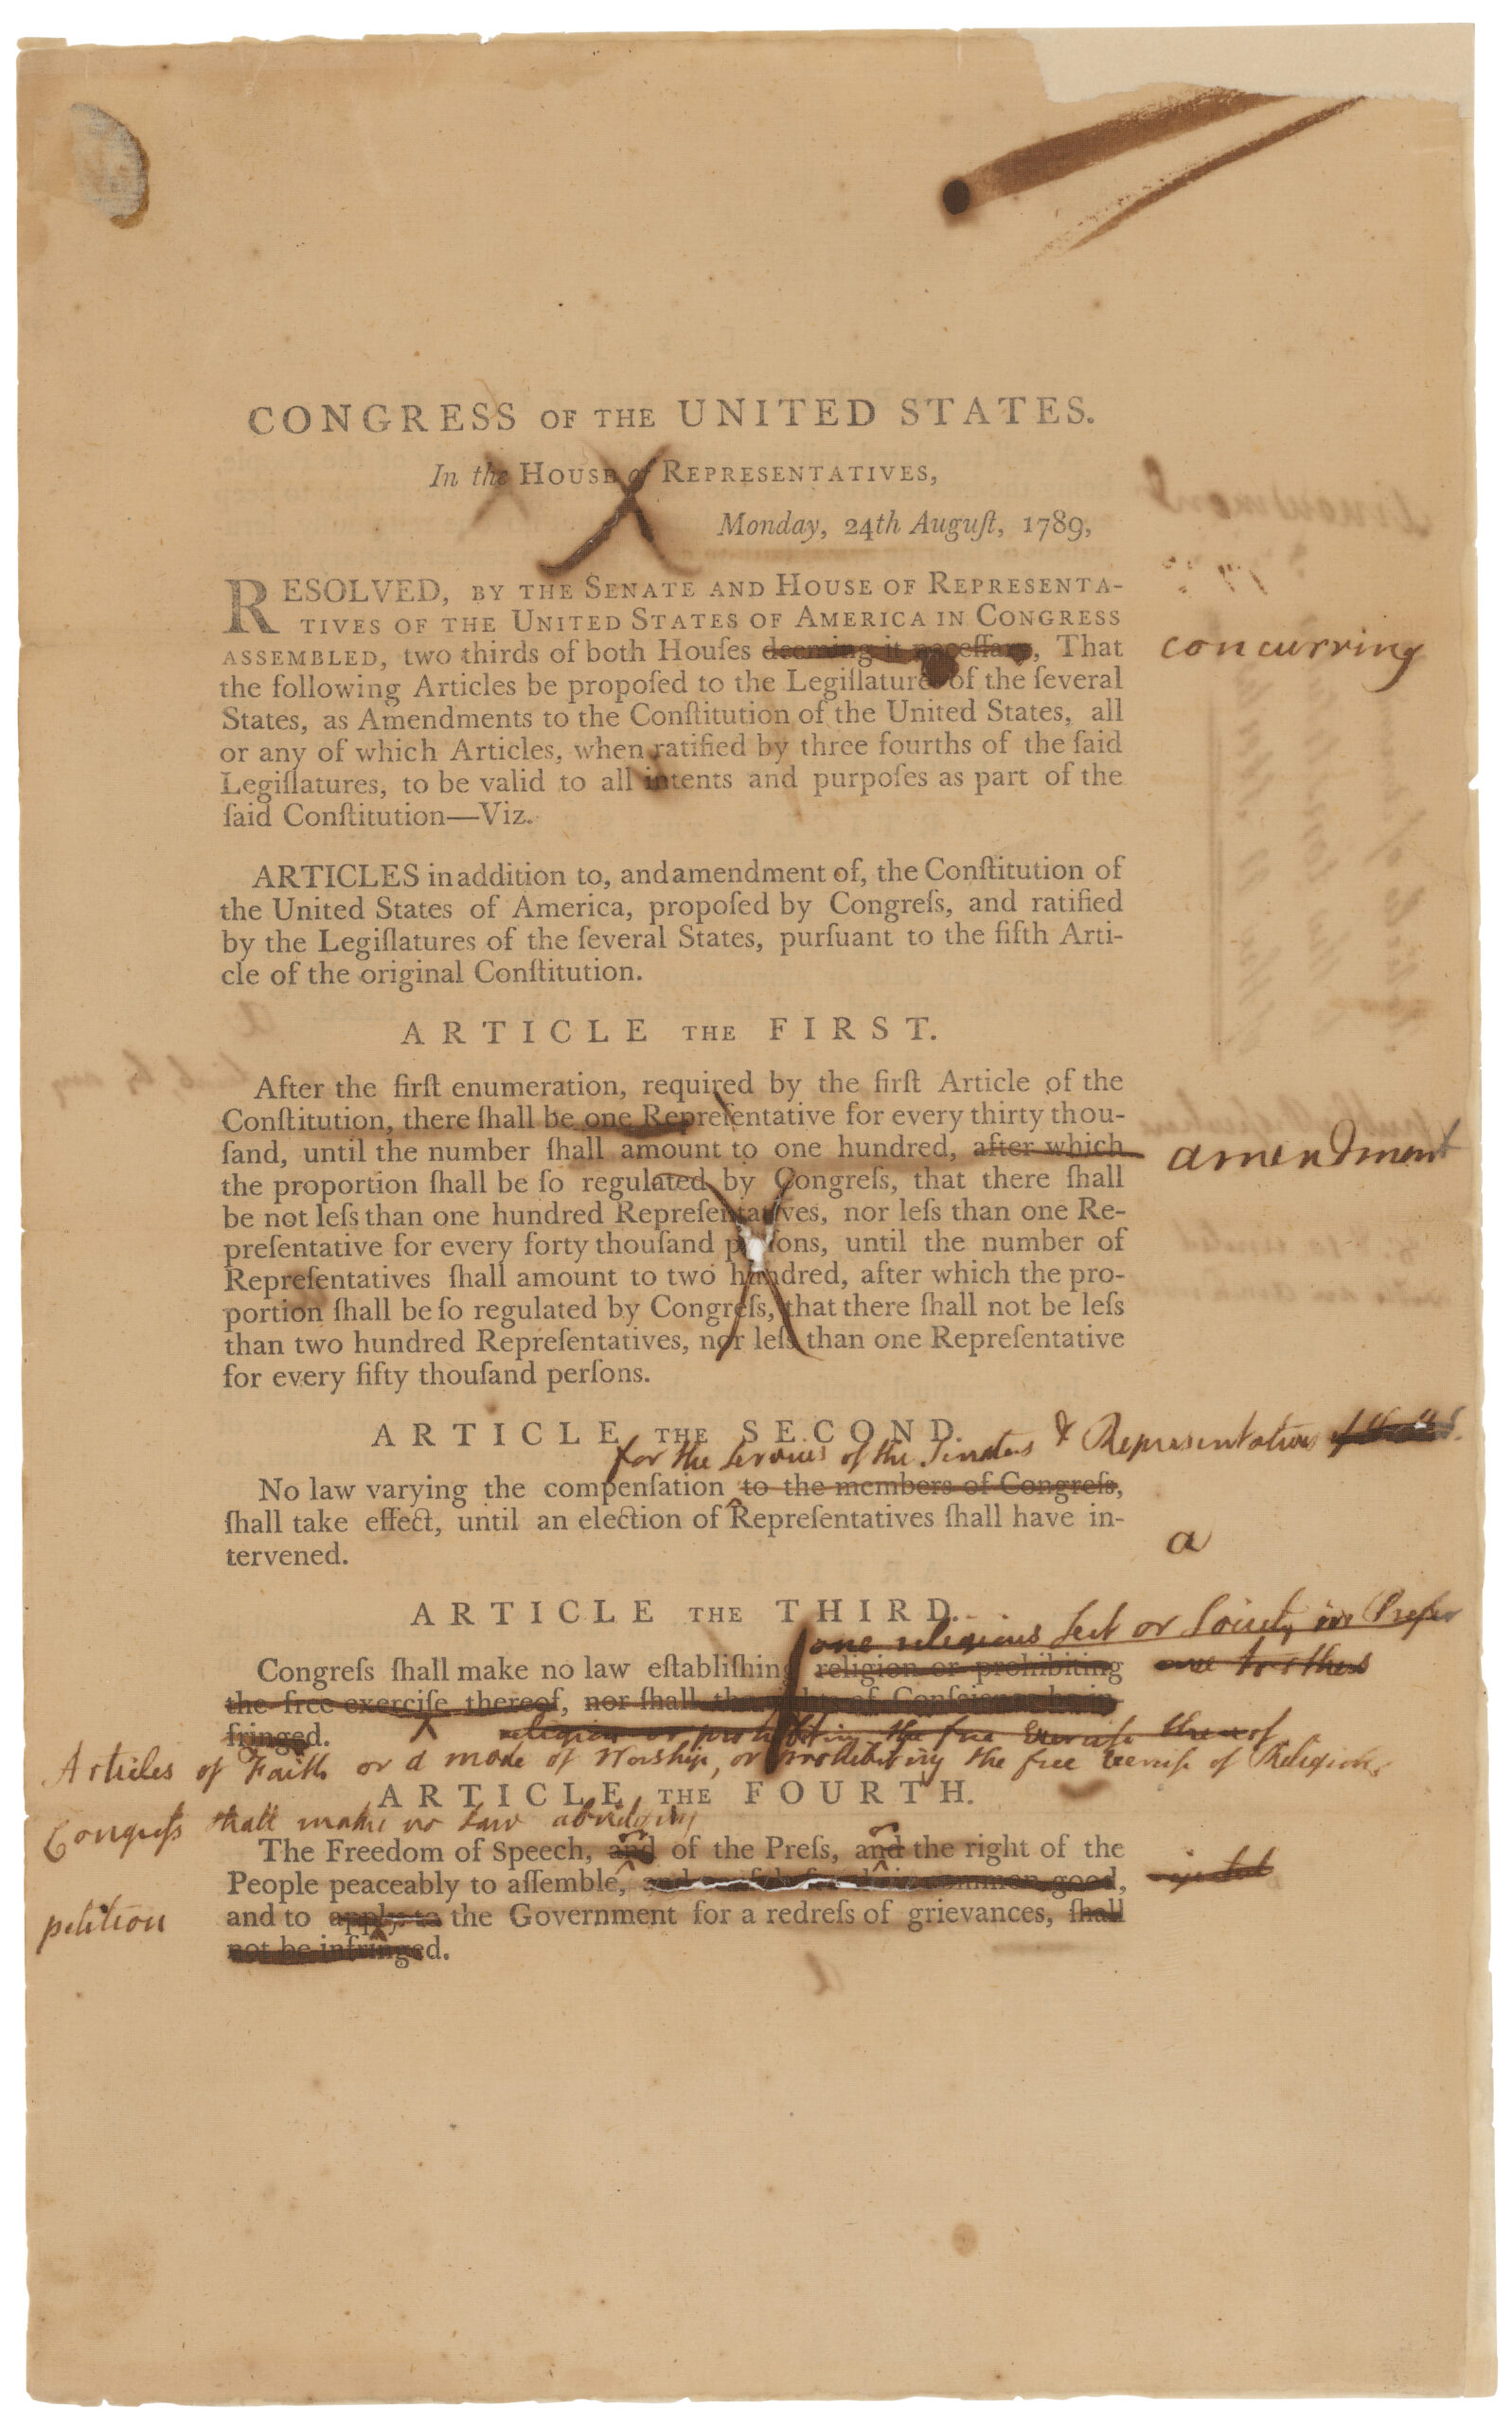 CONGRESS OF THE UNITED STATES.
In the HOUSE of REPRESENTATIVES,
Monday, 24th Auguſt, 1789,
RESOLVED, BY THE SENATE AND HOUSE OF REPRESENTA-
TIVES OF THE UNITED STATES OF AMERICA IN CONGRESS
ASSEMBLED, two thirds of both Houſes deeming it neceſſary, That
concurring
the following Articles be propoſed to the Legiſlatures of the ſeveral
States, as Amendments to the Conſtitution of the United States, all
or any of which Articles, when ratified by three fourths of the ſaid
Legiſlatures, to be valid to all intents and purpoſes as part of the
ſaid Conſtitution—Viz.
ARTICLES in addition to, and amendment of, the Conſtitution of
the United States of America, propoſed by Congreſs, and ratified
by the Legiſlatures of the ſeveral States, purſuant to the fifth Arti-
cle of the original Conſtitution.
ARTICLE THE FIRST.
After the firſt enumeration, required by the firſt Article of the
Conſtitution, there ſhall be one Repreſentative for every thirty thou-
ſand, until the number ſhall amount to one hundred, after which
amendment
the proportion ſhall be ſo regulated by Congreſs, that there ſhall
be not leſs than one hundred Repreſentatives, nor leſs than one Re-
preſentative for every forty thouſand perſons, until the number of
Repreſentatives ſhall amount to two hundred, after which the pro-
portion ſhall be ſo regulated by Congreſs, that there ſhall not be leſs
than two hundred Repreſentatives, nor leſs than one Repreſentative
for every fifty thouſand perſons.
ARTICLE THE SECOND.
for the Services of the Senators & Representatives
No law varying the compenſation to the members of Congreſs,
ſhall take effect, until an election of Repreſentatives ſhall have in-
tervened.
a
ARTICLE THE THIRD.
one religious Sect or Society in Prefer
Congreſs ſhall make no law eſtabliſhing religion or prohibiting
ence to others
the free exerciſe thereof, nor ſhall the rights of Conſcience be in-
fringed.
religion or prohibiting the free Exercise thereof
Articles of Faith or a mode of Worship, or prohibiting the free Exercise of Religion,
ARTICLE THE FOURTH.
Congreſs shall make no Law abridging
The Freedom of Speech, and of the Preſs, and the right of the
or
or
People peaceably to aſſemble, and conſult for their common good,
petition
and to apply to the Government for a redreſs of grievances, ſhall
not be infringed.